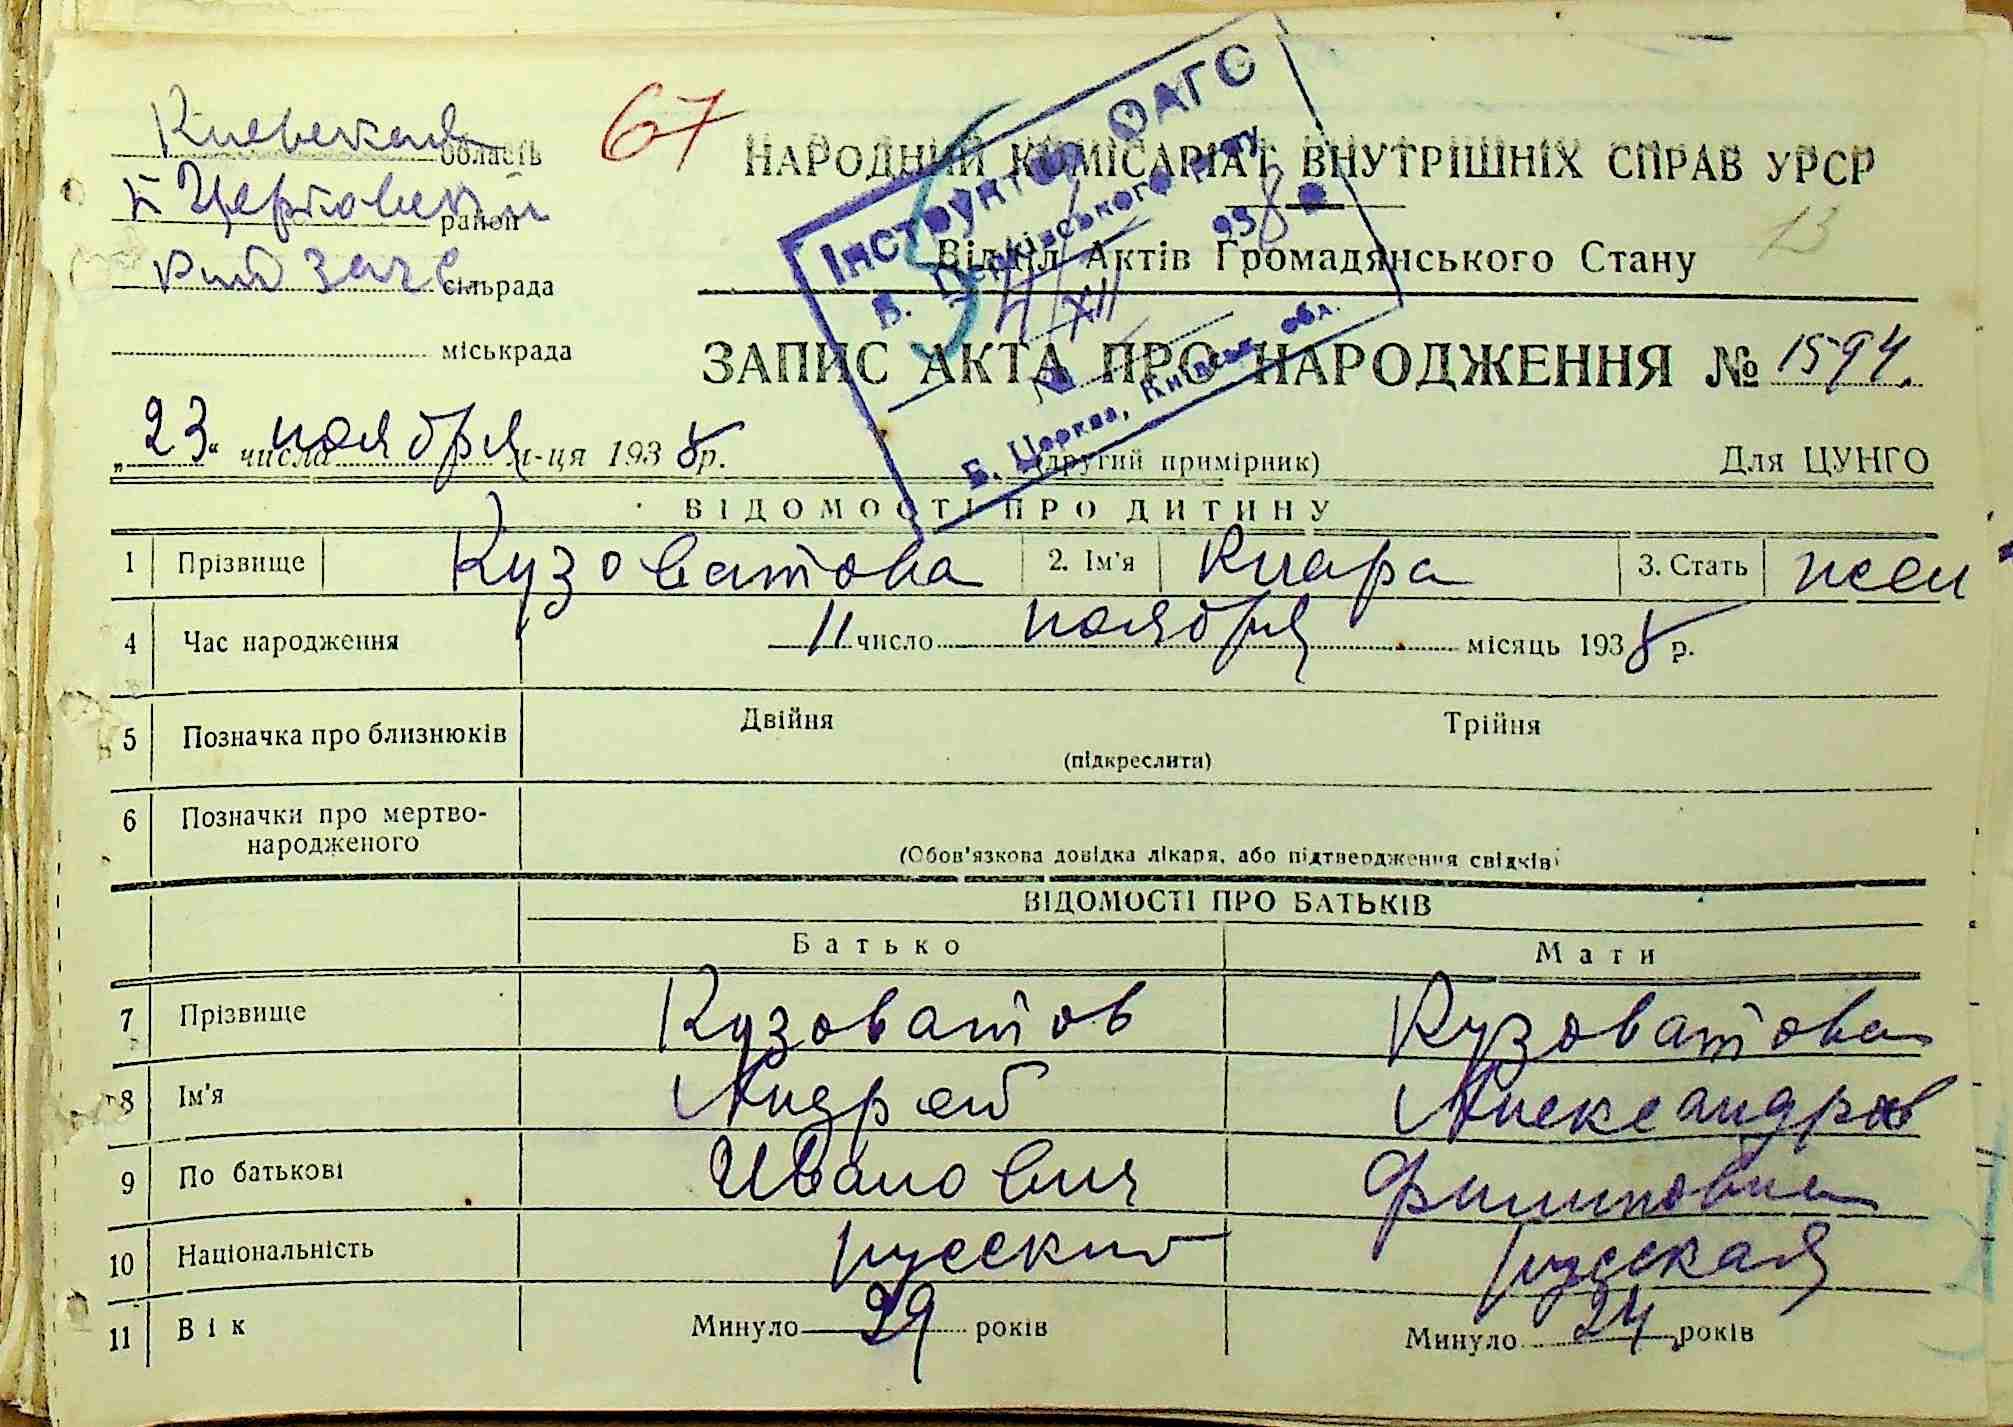 Киевская область
67
НАРОДНИЙ КОМІСАРІАТ ВНУТРІШНІХ СПРАВ УРСР
Б Церковский район
Відділ Актів Громадянського Стану
13
сільрада
міськрада
ЗАПИС АКТА ПРО НАРОДЖЕННЯ № 1594.
„23“ числа ноября м-ця 1938 р.
(другий примірник)
Для ЦУНГО
Інструктор ОАГС
Б. Церківського р-ну
4/XII 938 р
№
Б. Церква, Київськ. обл.
ВІДОМОСТІ ПРО ДИТИНУ
1 Прізвище Кузоватова 2. Ім'я Клара 3. Стать жен
4 Час народження 11 число ноября місяць 1938 р.
5 Позначка про близнюків Двійня Трійня
(підкреслити)
6 Позначки про мертво-
народженого
(Обов'язкова довідка лікаря, або підтвердження свідків)
ВІДОМОСТІ ПРО БАТЬКІВ
Батько Мати
7 Прізвище Кузоватов Кузоватова
8 Ім'я Андрей Александра
9 По батькові Иванович Филиповна
10 Національність русский русская
11 Вік Минуло 29 років Минуло 24 років